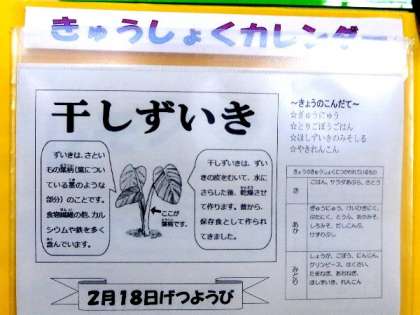 きゅうしょくカレンダー
干しずいき
ずいきは、さとい
もの葉柄(葉につい
ている茎のような
部分)のことです。
食物繊維の他、カル
シウムや鉄を多く
含んでいます。
ここが
葉柄です。
干しずいきは、ずい
きの皮をむいて、水に
さらした後、乾燥させ
て作ります。昔から、
保存食として作られ
てきました。
2月18日げつようび
~きょうのこんだて~
☆ぎゅうにゅう
☆とりごぼうごはん
☆ほしずいきのみそしる
☆やきれんこん
き
ごはん、サラダあぶら、さとう
あか
ぎゅうにゅう、けいにくに、
ぶたにく、とうふ、あかみそ、
しろみそ、だしこんぶ、
けずりぶし
みどり
しょうが、ごぼう、にんじん、
グリンピース、はくさい、
たまねぎ、あおねぎ、
ほしずいき、れんこん